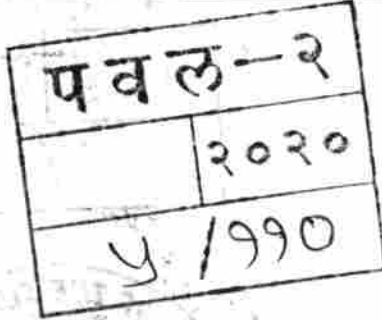 पवल-२
२०२०
५/११०